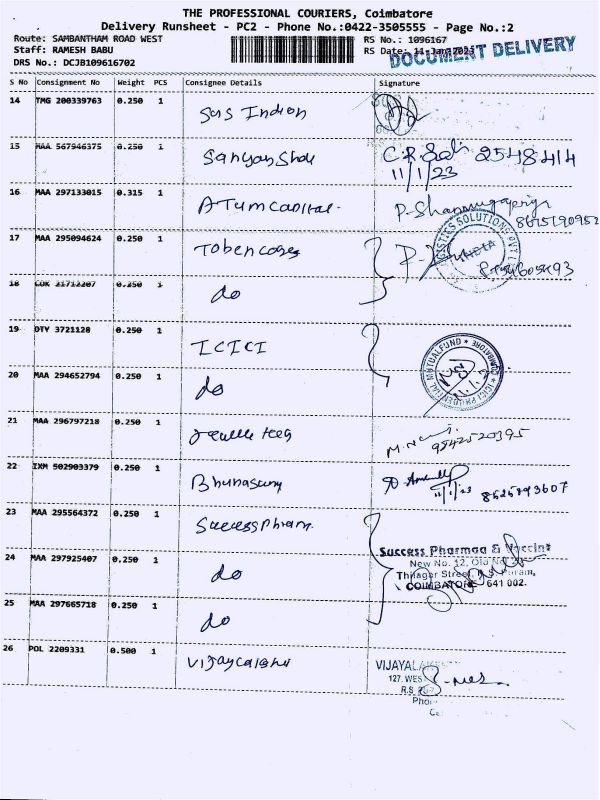 THE PROFESSIONAL COURIERS, Coimbatore
Delivery Runsheet - PC2 - Phone No.:0422-3505555 - Page No.:2
Route: SAMBANTHAM ROAD WEST RS No.: 1096167
Staff: RAMESH BABU RS Date: 11-Jan-2023
DOCUMENT DELIVERY
DRS No.: DCJB109616702
S No Consignment No Weight PCS Consignee Details Signature
14 TMG 200339763 0.250 1 Sus Indian
15 MAA 567946375 0.250 1 2548414
11/1/23
16 MAA 297133015 0.315 1 Atumcapital. P. Shanmugapriya
17 MAA 295094624 0.250 1
GISTICS SOLUTIONS PVT L
INDIA
18 COK 21712207 0.250 1 do
19 DTV 3721128 0.250 1 ICICI
ICICI PRUDENTIAL MUTUAL FUND * COIMBATORE *
20 MAA 294652794 0.250 1 do
21 MAA 296797218 0.250 1 9842520395
22 IXM 502903379 0.250 1 11/1/23 8625893607
23 MAA 295564372 0.250 1 Success Pharm.
Success Pharmaa & Vaccine
New No. 12, Old No.
24 MAA 297925407 0.250 1 do Thilagar Street,
COIMBATORE 641 002.
25 MAA 297665718 0.250 1 do
26 POL 2209331 0.500 1 VIJAYALA
127. WES
R.S.
Phon